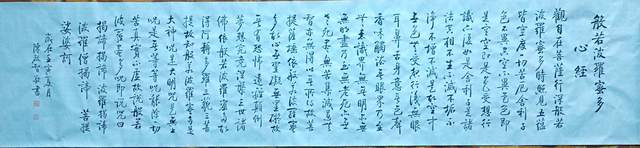 般若波羅蜜多
心經
觀自在菩薩行深般若
波羅蜜多時照見五蘊
皆空度一切苦厄舍利子
色不異空空不異色色即
是空空即是色受想行
識亦復如是舍利子是諸
法空相不生不滅不垢不
淨不增不減是故空中
無色無受想行識無眼
耳鼻舌身意無色聲
香味觸法無眼界乃至
無意識界無無明亦無
無明盡乃至無老死亦無
老死盡無苦集滅道無
智亦無得以無所得故菩
提薩埵依般若波羅蜜
多故心無罣礙無罣礙故
無有恐怖遠離顛倒
夢想究竟涅槃三世諸
佛依般若波羅蜜多故
得阿耨多羅三藐三菩
提故知般若波羅蜜多是
大神咒是大明咒是無上
咒是無等等咒能除一切
苦真實不虛故說般若
波羅蜜多咒即說咒曰
揭諦揭諦 波羅揭諦
波羅僧揭諦 菩提
娑婆訶
歲在壬寅夏月